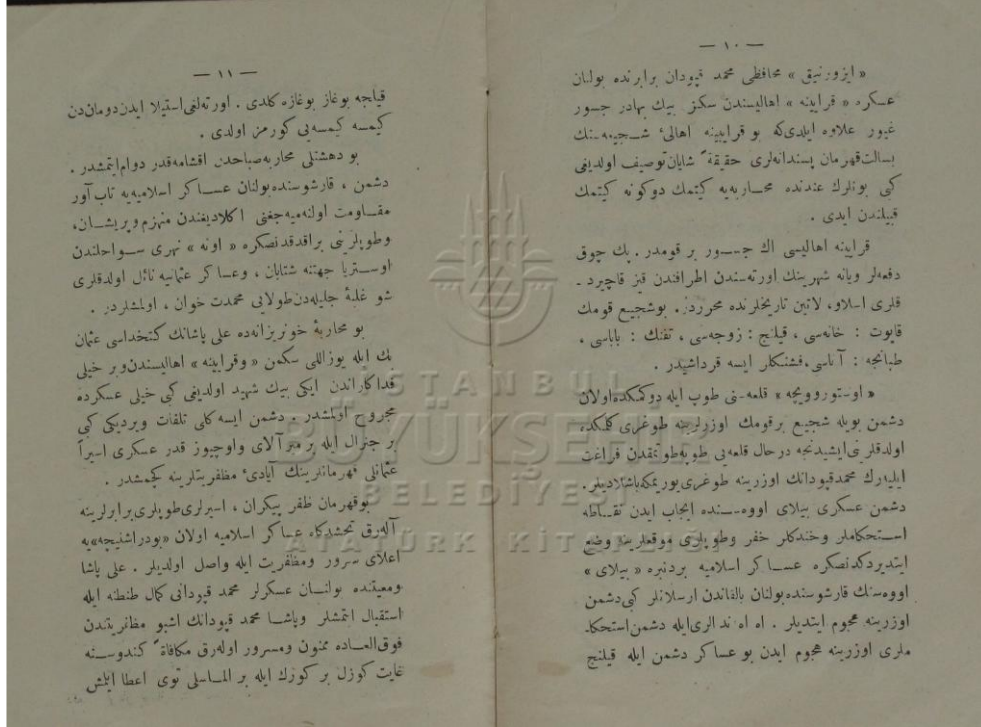 — ١٠ —
« ايزورنيق » محافظى محمد قپودان برابرنده بولنان
عسكره « قراينه » اهاليسندن سكز بيك بهادر جسور
غيور علاوه ايلدى كه بو قرايينه اهالئ شجيعه سنك
بسالت قهرمان پسندانه لرى حقيقةً شايان توصيف اولديغى
كبى بونلرك عندنده محاربه يه كيتمك دوكونه كيتمك
قبيلندن ايدى .
قراينه اهاليسى اك جسور بر قومدر . پك چوق
دفعه لر ويانه شهرينك اورته سندن اطرافندن قيز قاچيرد ـ
قلرى اسلاو، لاتين تاريخلرنده محرردر . بو شجيع قومك
قاپوت : خانه سى ، قيلنج : زوجه سى ، تفنك : باباسى .
طبانجه : آناسى ، فشنكلر ايسه قرداشيدر .
« اوستوروويچه » قلعه سنى طوپ ايله دوكمكده اولان
دشمن بويله شجيع بر قومك اوزرلرينه طوغرى كلمكده
اولدقلرينى ايشيدنجه درحال قلعه يى طوپه طوتمقدن فراغت
ايليه رك محمد قپودانك اوزرينه طوغرى يوريمكه باشلاديلر .
دشمن عسكرى بيلاى اووه سنده ايجاب ايدن نقاطه
استحكاملر وخندكلر حفر وطوپلرى موقعلرينه وضع
ايتديردكدنصكره عساكر اسلاميه بردنبره « بيلاى »
اووه سنك قارشوسنده بولنان بالقاندن ارسلانلر كبى دشمن
اوزرينه هجوم ايتديلر . اه اه ندالرى ايله دشمن استحكا ـ
ملرى اوزرينه هجوم ايدن بو عساكر دشمن ايله قيلنج
— ١١ —
قيلجه بوغاز بوغازه كلدى . اورته لغى استيلا ايدن دوماندن
كيمسه كيمسه يى كورمز اولدى .
بو دهشتلى محاربه صباحدن اقشامه قدر دوام ايتمشدر .
دشمن ، قارشوسنده بولنان عساكر اسلاميه يه تاب آور
مقاومت اولنه ميه جغنى اكلاديغندن منهزم وپريشان،
وطوپلرينى براقدقدنصكره « اونه » نهرى سواحلندن
اوستريا جهتنه شتابان ، وعساكر عثمانيه نائل اولدقلرى
شو غلبهٔ جليله دن طولايى محمدت خوان ، اولمشلردر .
بو محاربهٔ خونريزانه ده على پاشانك كتخداسى عثمان
بك ايله يوز اللى سكمن « وقراينه » اهاليسندن وبر خيلى
فداكاراندن ايكى بيك شهيد اولديغى كبى خيلى عسكرده
مجروح اولمشدر . دشمن ايسه كلى تلفات ويرديكى كبى
بر جنرال ايله بر مير آلاى واوچيوز قدر عسكرى اسيراً
عثمانلى قهرمانلرينك آيادئ مظفريتلرينه كچمشدر .
بو قهرمان ظفر پيكران ، اسيرلرى طوپلرى برابرلرينه
آله رق تحشدكاه عساكر اسلاميه اولان «بودراشنيچه»يه
اعلاى سرور ومظفريت ايله واصل اولديلر . على پاشا
ومعيتنده بولنان عسكرلر محمد قپودانى كمال طنطنه ايله
استقبال ايتمشلر وپاشا محمد قپودانك اشبو مظفريتندن
فوق العاده ممنون ومسرور اوله رق مكافاةً كندوسنه
غايت كوزل بر كورك ايله بر الماسلى توى اعطا ايلمش
ISTANBUL
BÜYÜKŞEHİR
BELEDİYESİ
ATATÜRK KİTAPLIĞI